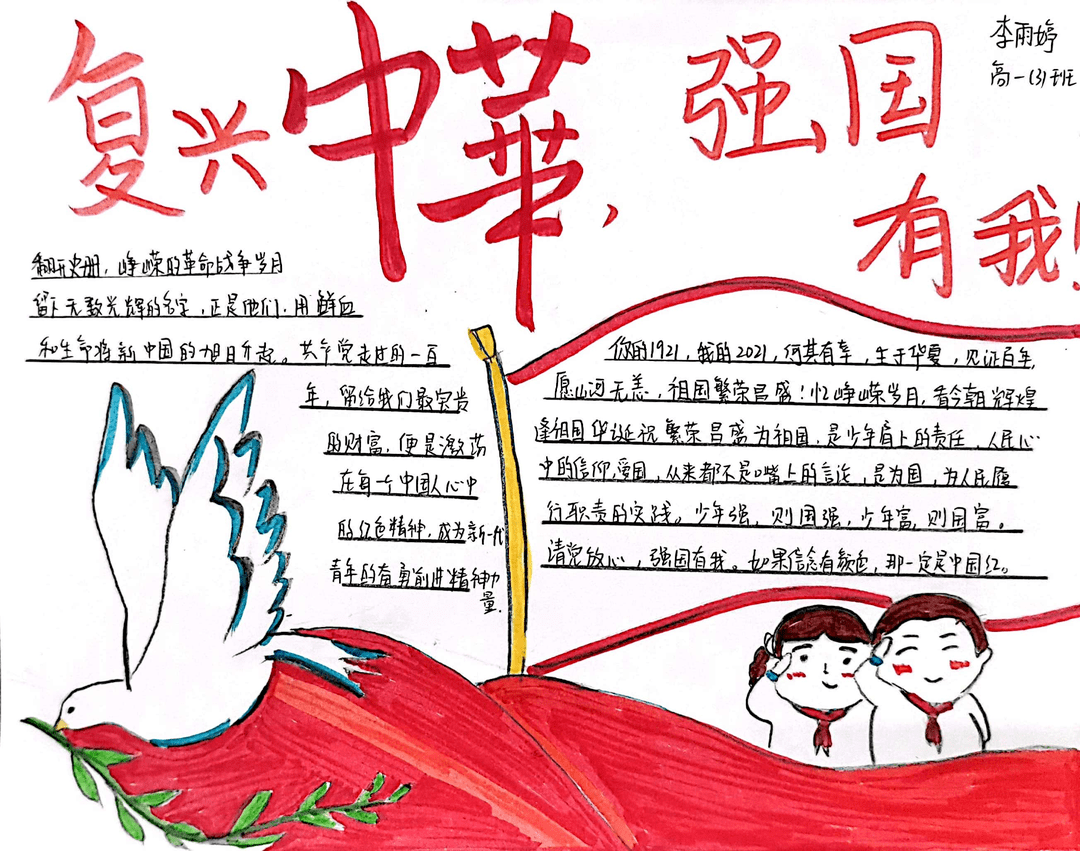 复兴中華，强国
有我！
李雨婷
高一(3)班
翻开史册，峥嵘的革命战争岁月
留下无数光辉的名字，正是他们，用鲜血
和生命将新中国的旭日升起。共产党走过的一百
年，留给我们最宝贵
的财富，便是激荡
在每一个中国人心中
的红色精神，成为新一代
青年的奋勇前进精神力
量。
你的1921，我的2021，何其有幸，生于华夏，见证百年，
愿山河无恙，祖国繁荣昌盛！忆峥嵘岁月，看今朝辉煌
逢祖国华诞祝繁荣昌盛为祖国，是少年肩上的责任，人民心
中的信仰，爱国，从来都不是嘴上的言论，是为国，为人民履
行职责的实践。少年强，则国强，少年富，则国富。
请党放心，强国有我。如果信念有颜色，那一定是中国红。